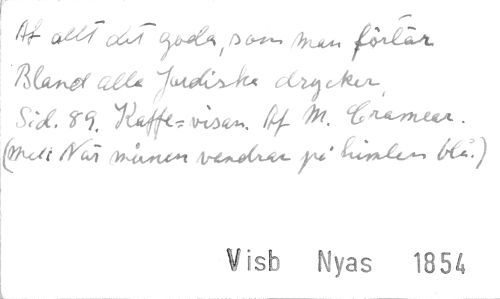 Af allt det goda, som man förtär
Bland alla Jordiska drycker,
Sid. 89. Kaffe=visan. Af M. Cramear.
(Mel: När månen vandrar på himlen blå.)
Visb Nyas 1854